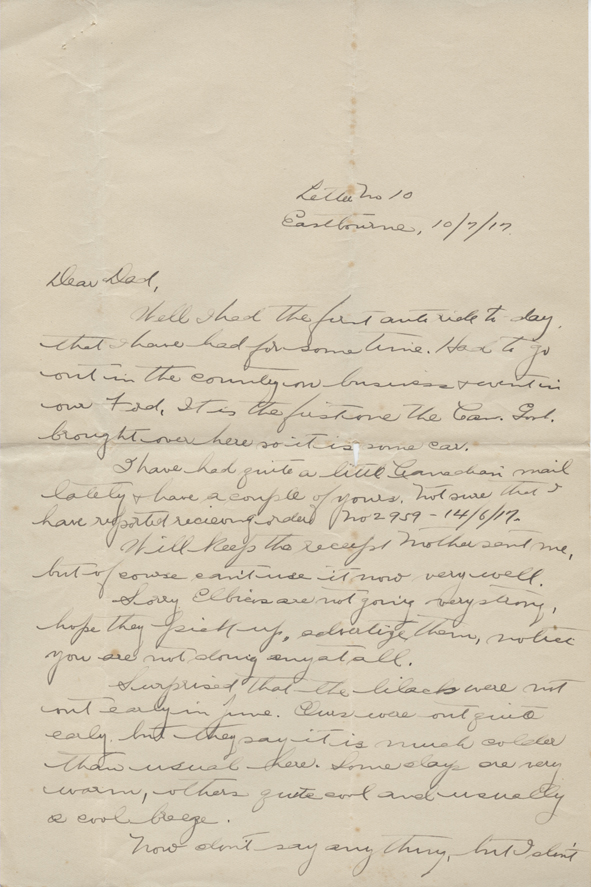 Letter No 10
Eastbourne, 10/7/17.
Dear Dad,
Well I had the first auto ride to-day,
that I have had for some time. Had to go
out in the country on business & went in
our Ford. It is the first one the Can. Govt.
brought over here so it is some car.
I have had quite a little Canadian mail
lately & have a couple of yours. Not sure that I
have reported recieving order No 2959 - 14/6/17.
Will keep the receipt Mother sent me,
but of course can't use it now very well.
Sorry Elbicos are not going very strong,
hope they pick up, advertize them, notice
you are not doing any at all.
Surprised that the lilacs were not
out early in June. Ours were out quite
early but they say it is much colder
than usual here. Some days are very
warm, others quite cool and usually
a cool breeze.
Now don't say any thing, but I don't